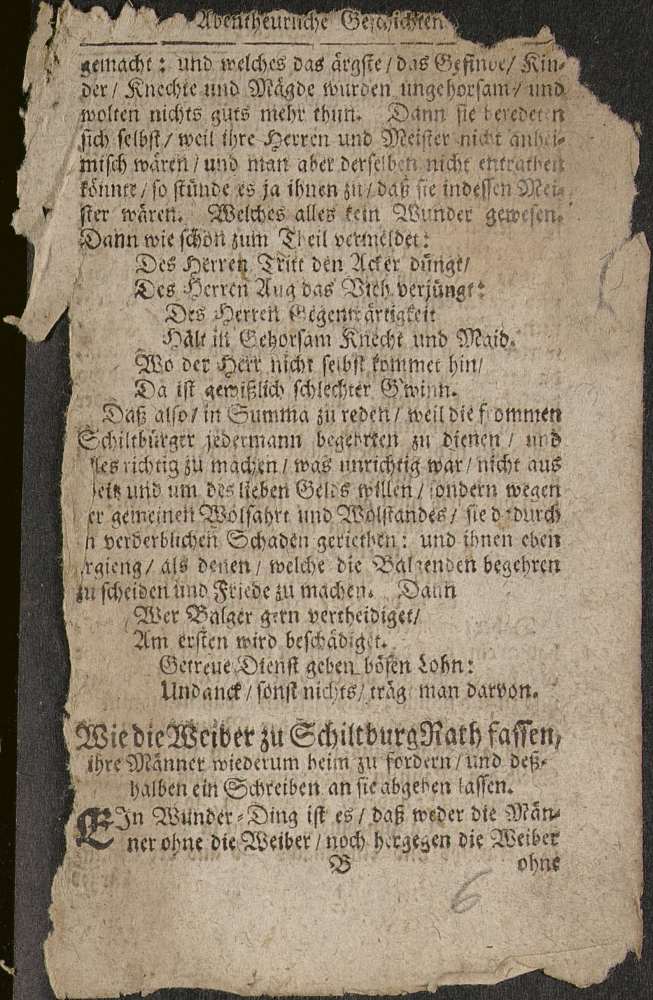 Abentheurliche Geschichten
gemacht: und welches das ärgste / das Gesinde / Kin-
der / Knechte und Mägde wurden ungehorsam / und
wolten nichts guts mehr thun. Dann sie beredeten
sich selbst / weil ihre Herren und Meister nicht anhei-
misch wären / und man aber derselben nicht entrathen
könnte / so stünde es ja ihnen zu / daß sie indessen Mei-
ster wären. Welches alles kein Wunder gewesen.
Dann wie schon zum Theil vermeldet:
Des Herren Tritt den Acker düngt /
Des Herren Aug das Vieh verjüngt:
Des Herren Gegenwärtigkeit
Hält in Gehorsam Knecht und Maid.
Wo der Herr nicht selbst kommet hin /
Da ist gewißlich schlechter G'winn.
Daß also / in Summa zu reden / weil die frommen
Schiltbürger jedermann begehrten zu dienen / und
lles richtig zu machen / was unrichtig war / nicht aus
eitz und um des lieben Gelds willen / sondern wegen
er gemeinen Wolfahrt und Wolstandes / sie dadurch
n verderblichen Schaden geriethen: und ihnen eben
rgieng / als denen / welche die Balgenden begehren
zu scheiden und Friede zu machen. Dann
Wer Balger gern vertheidiget /
Am ersten wird beschädiget.
Getreue Dienst geben bösen Lohn:
Undanck / sonst nichts / träg man darvon.
Wie die Weiber zu Schiltburg Rath fassen,
ihre Männer wiederum heim zu fordern / und deß-
halben ein Schreiben an sie abgehen lassen.
EIn Wunder-Ding ist es / daß weder die Män-
ner ohne die Weiber / noch hergegen die Weiber
B ohne
6